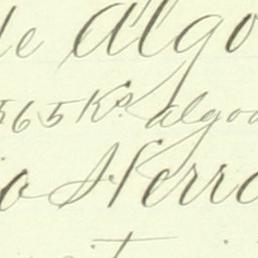 de Algo
565 Ks. algod
io Herre